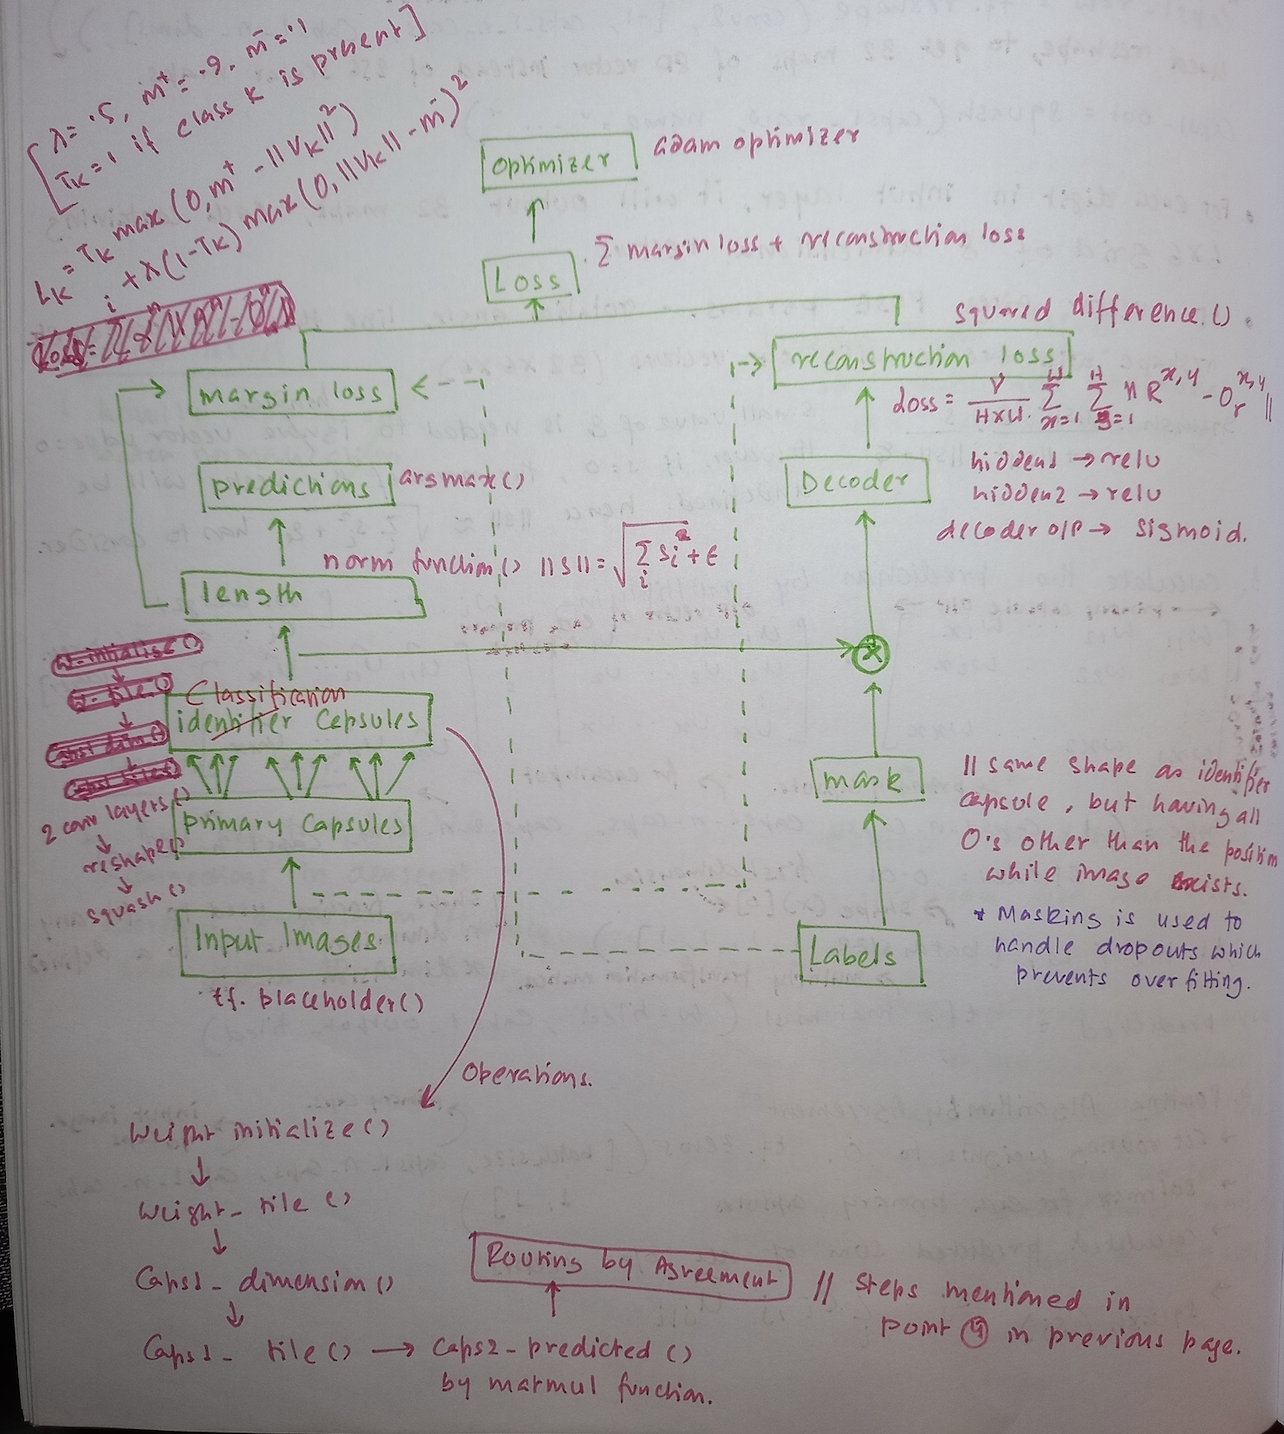 λ = .5, m⁺ = .9, m⁻ = .1
Tk = 1 if class k is present]
Lk = Tk max(0, m⁺ - ||Vk||²)
+ λ(1-Tk) max(0, ||Vk|| - m⁻)²
optimizer
adam optimizer
Loss
Σ margin loss + reconstruction loss
i
squared difference ()
margin loss
reconstruction loss
Loss = γ/H×W Σ x=1 W Σ y=1 H || R^x,y - Or^x,y ||
predictions
argmax()
Decoder
hidden1 → relu
hidden2 → relu
decoder O/P → Sigmoid.
norm function() ||S|| = √Σ Si² + ε
i
length
W-initialise()
W-tile()
Caps1 dim()
Caps1 tiles()
Classification
identifier Capsules
2 conv layers()
reshape()
squash()
Primary Capsules
mask
|| same shape as identifier
capsule, but having all
0's other than the position
while image exists.
* Masking is used to
handle dropouts which
prevents overfitting.
Input Images
tf. placeholder()
Labels
Operations.
Weight initialize()
Weight_ tile ()
Caps1_ dimension()
Caps1_ tile() → Caps2_predicted ()
by matmul function.
Routing by Agreement
// Steps mentioned in
point ④ in previous page.